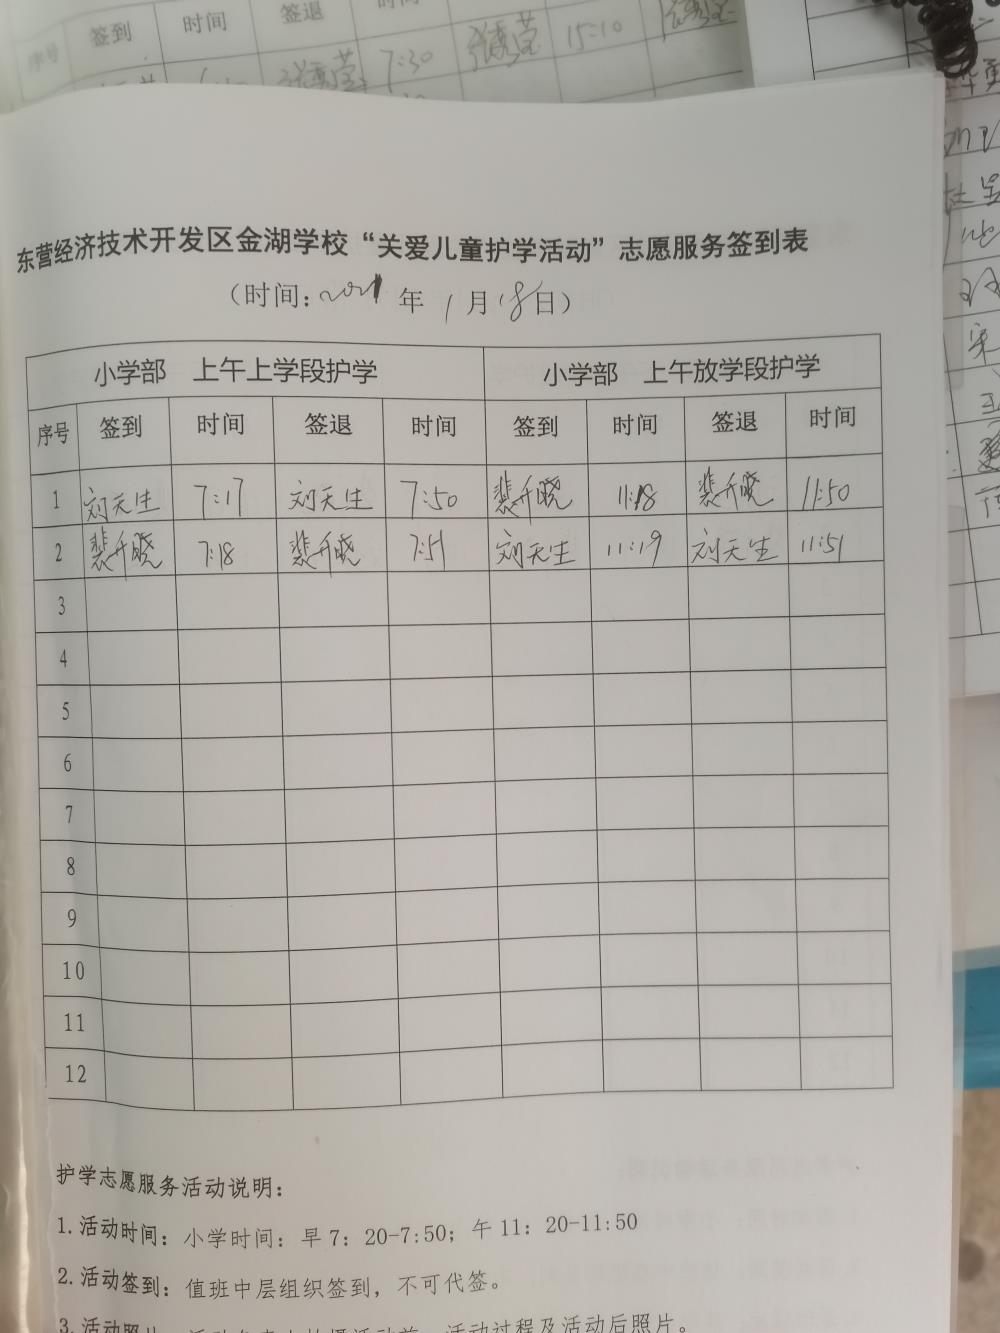 签到 时间 签退 时间
序号
张秀莹 7:30 张秀莹 15:10
东营经济技术开发区金湖学校“关爱儿童护学活动”志愿服务签到表
（时间：2021年1月18日）
小学部 上午上学段护学 小学部 上午放学段护学
序号 签到 时间 签退 时间 签到 时间 签退 时间
1 刘天生 7:17 刘天生 7:50 裴升晓 11:18 裴升晓 11:50
2 裴升晓 7:18 裴升晓 7:51 刘天生 11:19 刘天生 11:51
3
4
5
6
7
8
9
10
11
12
护学志愿服务活动说明：
1.活动时间：小学时间：早7：20-7:50；午11：20-11:50
2.活动签到：值班中层组织签到，不可代签。
3.活动照片 活动过程及活动后照片。